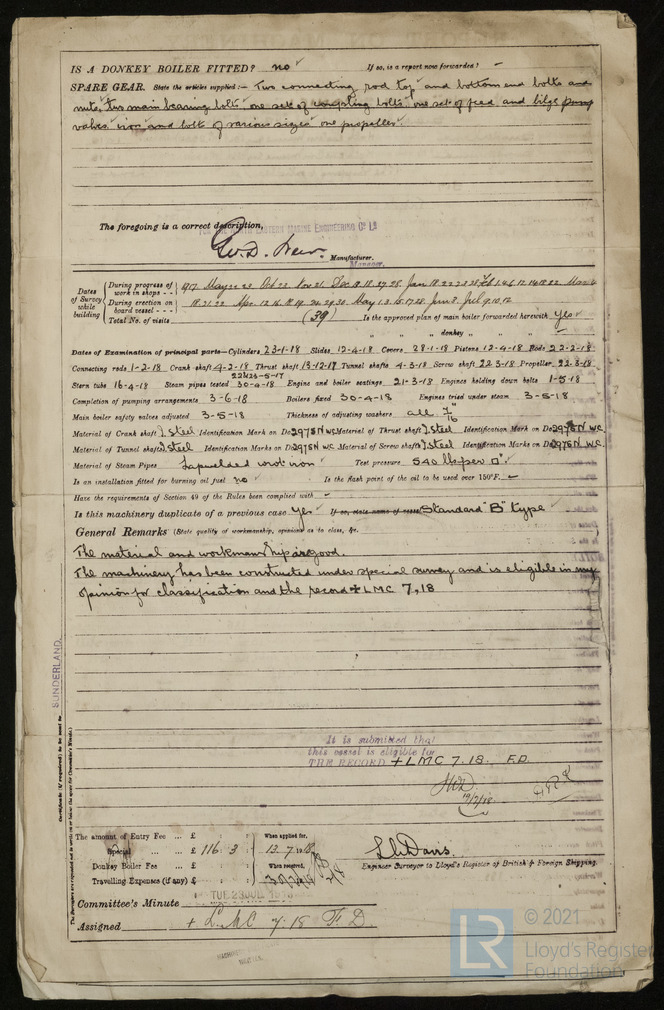 IS A DONKEY BOILER FITTED? no If so, is a report now forwarded?
SPARE GEAR. State the articles supplied:— Two connecting rod top and bottom end bolts and
nuts, two main bearing bolts, one set of coupling bolts, one set of feed and bilge pump
valves, iron and bolts of various sizes one propeller.
The foregoing is a correct description,
FOR THE NORTH EASTERN MARINE ENGINEERING Co Ld
Manufacturer.
Manager.
Dates of Survey while building
During progress of work in shops - -
1917 May 22 23 Oct 22 Nov 21 Dec
During erection on board vessel - - -
18.21.22 Apr. 12.16.18.19. 24.29.30 May 1.3.15.17.28 Jun 3. Jul 9.10.12
Total No. of visits (39) Is the approved plan of main boiler forwarded herewith Yes
" " " donkey " " "
Dates of Examination of principal parts—Cylinders 23-1-18 Slides 12-4-18 Covers 28-1-18 Pistons 12-4-18 Rods 22-2-18
Connecting rods 1-2-18 Crank shaft 4-2-18 Thrust shaft 13-12-17 Tunnel shafts 4-3-18 Screw shaft 22-3-18 Propeller 22-3-18
Stern tube 16-4-18 Steam pipes tested 30-4-18 Engine and boiler seatings 21-3-18 Engines holding down bolts 1-5-18
Completion of pumping arrangements 3-6-18 Boilers fixed 30-4-18 Engines tried under steam 3-5-18
Main boiler safety valves adjusted 3-5-18 Thickness of adjusting washers all 7/16"
Material of Crank shaft I Steel Identification Mark on Do 2975N WC Material of Thrust shaft I Steel Identification Mark on Do 2975N WC
Material of Tunnel shafts I Steel Identification Marks on Do 2975N WC Material of Screw shafts I Steel Identification Marks on Do 2975N WC
Material of Steam Pipes Lapwelded wrot iron Test pressure 540 lbs per □"
Is an installation fitted for burning oil fuel no Is the flash point of the oil to be used over 150°F. —
Have the requirements of Section 49 of the Rules been complied with —
Is this machinery duplicate of a previous case Yes If so, state name of vessel Standard "B" type
General Remarks (State quality of workmanship, opinions as to class, &c.
The material and workmanship is good.
The machinery has been constructed under special survey and is eligible in my
opinion for classification and the record + LMC 7,18
SUNDERLAND.
It is submitted that
this vessel is eligible for
THE RECORD + LMC 7.18. F.D.
19/7/18.
The amount of Entry Fee ... £ : : When applied for,
Special ... £ 116 : 3 : 13.7.1918
Donkey Boiler Fee ... £ : : When received,
Travelling Expenses (if any) £ : :
L. Davis.
Engineer Surveyor to Lloyd's Register of British & Foreign Shipping.
Committee's Minute TUE. 23 JUL. 1918
Assigned + LMC 7.18 F.D
© 2021
LR
Lloyd's Register
Foundation